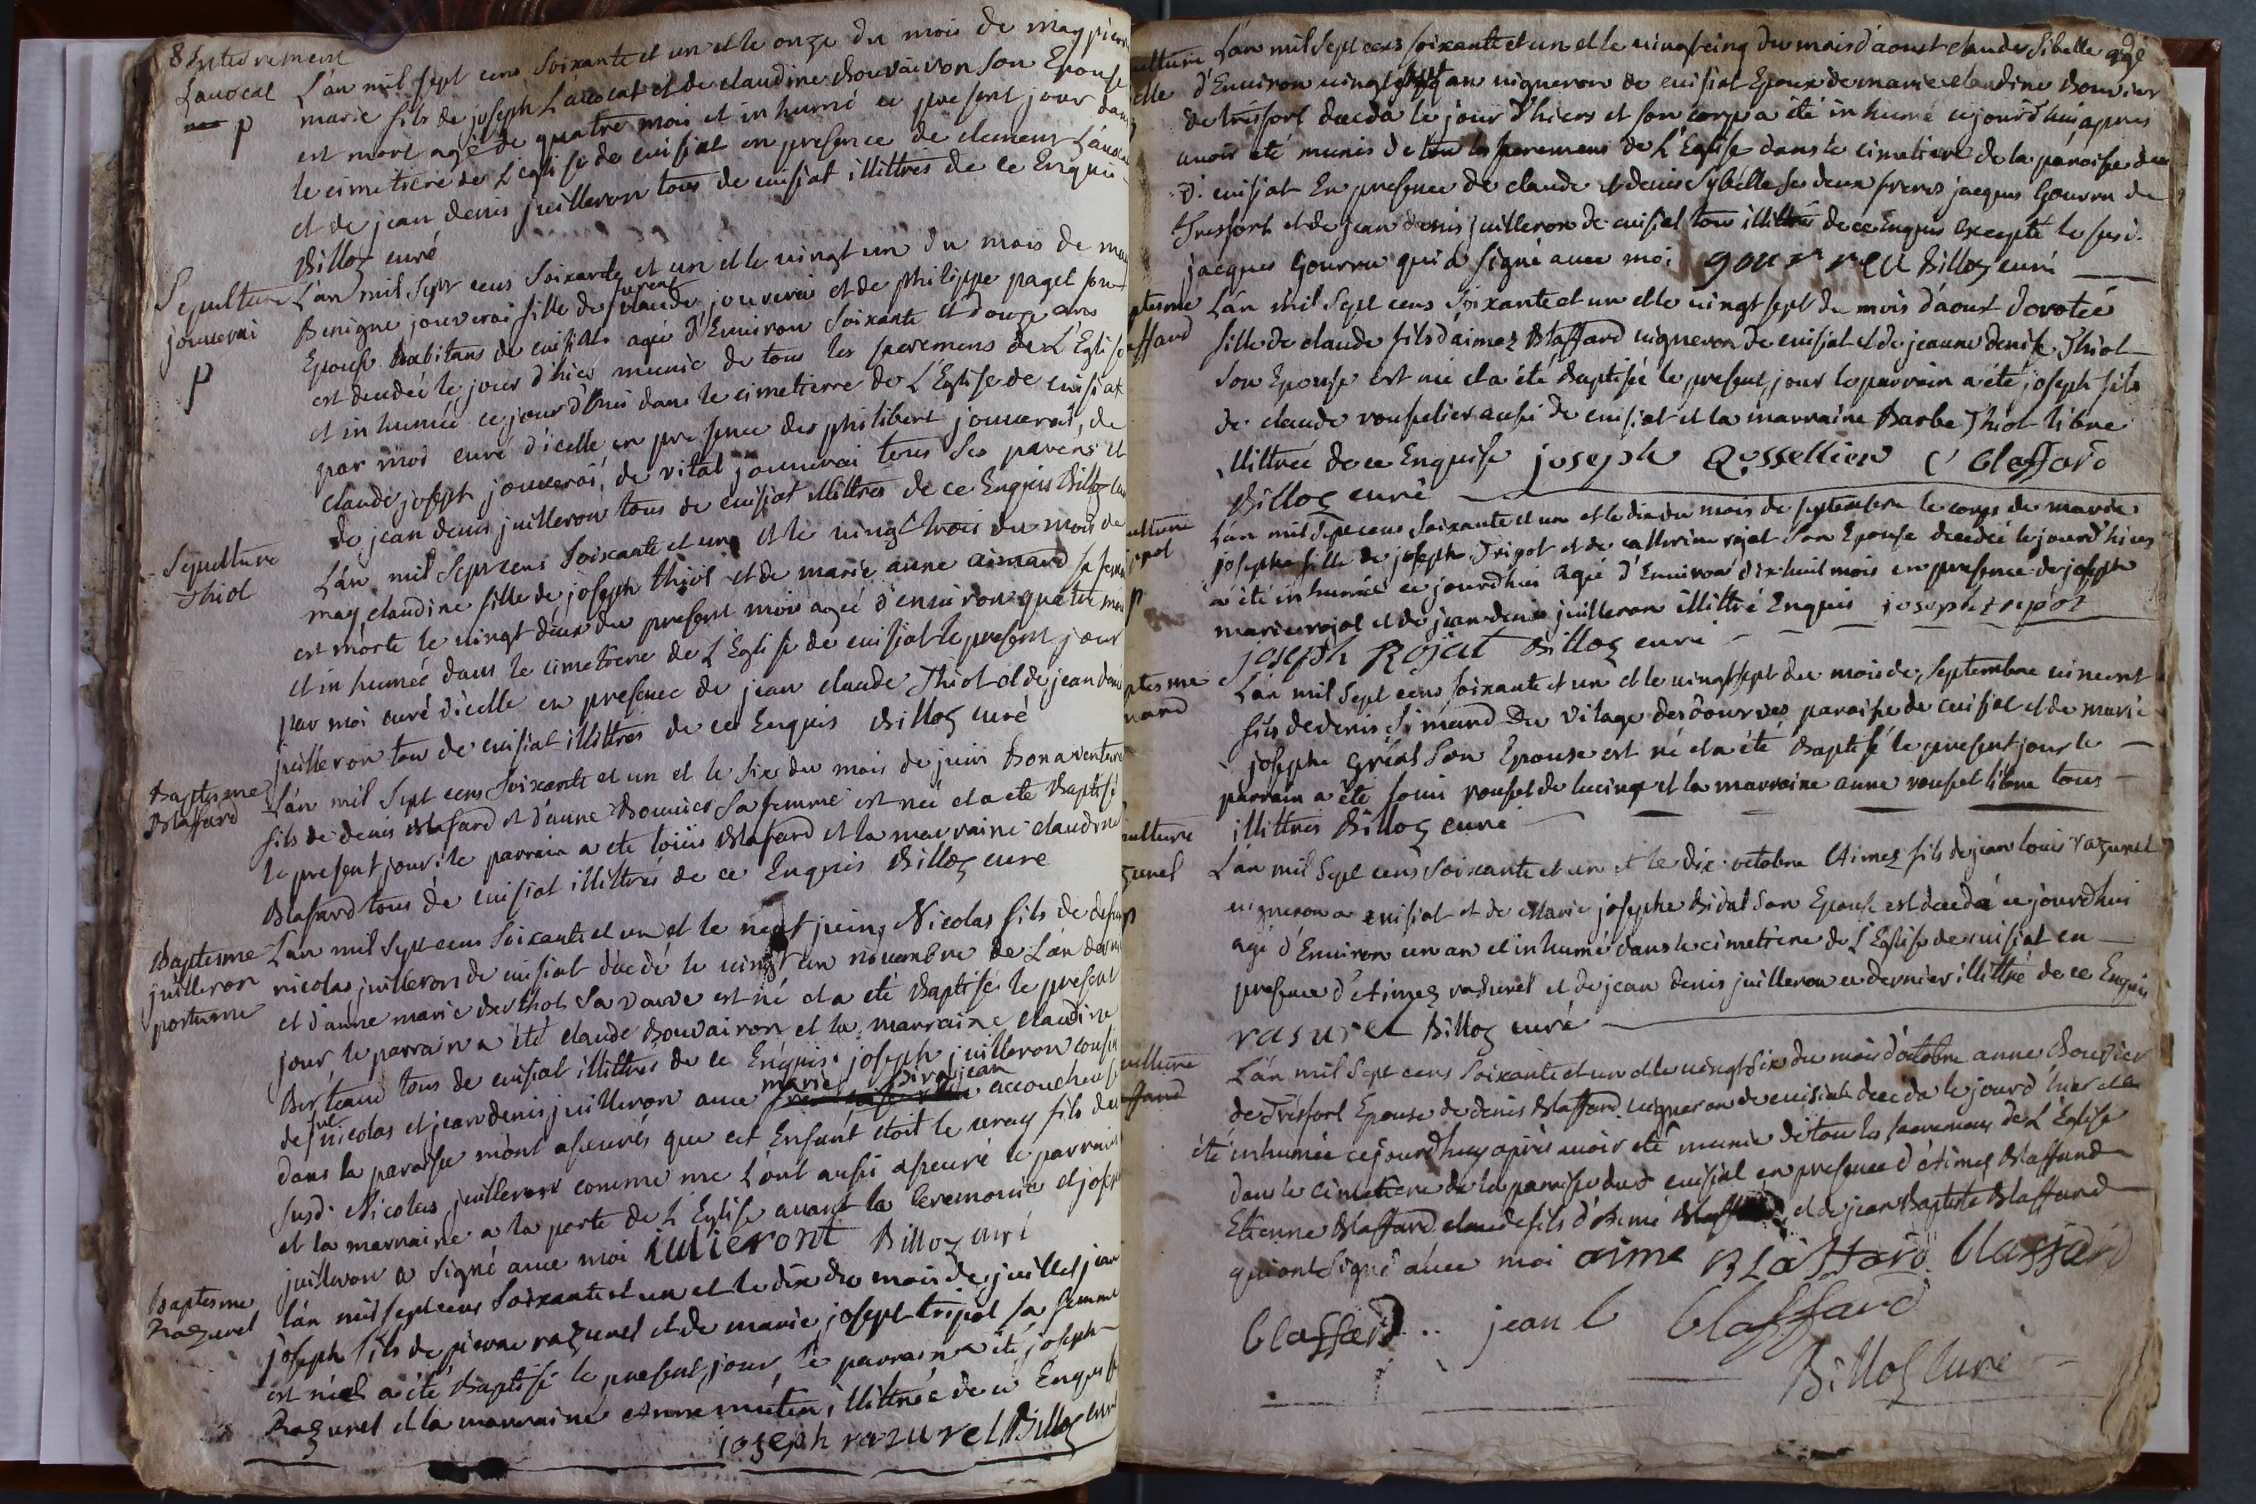 8 Enterrement
Lavocat
p
L'an mil sept cens soixante et un et le onze du mois de may pierre
marie fils de joseph Lavocat et de claudine Bouvairon son Epouse
est mort agé de quatre mois et inhumé ce present jour dans
le cimetiere de L'eglise de cuisiat en presence de clement Lavocat
et de jean denis juilleron tous de cuisiat illittrés de ce Enquis
Billoz curé
Sepulture
jouverai
p
L'an mil sept cens soixante et un et le vingt un du mois de may
Benigne jouverai fille de claude jouverai et de philippe paget son
Epouse habitans de cuisiat agée d'Environ soixante et douze ans
est decedée le jour d'hier munie de tous les sacremens de L'Eglise
et inhumée ce jourd'hui dans le cimetierre de L'Eglise de cuisiat
par moi curé d'icelle en presence de philibert jouverai, de
claude joseph jouverai, de vital jouverai tous ses parens et
de jean denis juilleron tous de cuisiat illittrés de ce Enquis Billoz curé
Sepulture
Thiol
L'an mil sept cens soixante et un et le vingt trois du mois de
may claudine fille de joseph thiol et de marie anne aimard sa femme
est morte le vingt deux du present mois agée d'environ quatre mois
et inhumée dans le cimetiere de L'Eglise de cuisiat le present jour
par moi curé d'icelle en presence de jean claude Thiol et de jean denis
juilleron tous de cuisiat illittrés de ce Enquis Billoz curé
Baptesme
Blaffard
L'an mil sept cens soixante et un et le six du mois de juin Bonaventure
fils de denis Blafard et d'anne Bouvier sa femme est né et a été Baptisé
le present jour: le parrain a ete loüis Blafard et la marraine claudine
Blafard tous de cuisiat illittrés de ce Enquis Billoz curé
Baptesme
juilleron
postume
L'an mil sept cens soixante et un et le neuf juin Nicolas fils de defunt
nicolas juilleron de cuisiat decedé le vingt un novembre de L'an dernier
et d'anne marie Berthot sa veuve est né et a eté Baptisé le present
jour, le parrain a été claude Bouvairon et la marraine claudine
Berteaud tous de cuisiat illittrés de ce Enquis. joseph juilleron cousin
marie Pirajean
de nicolas et jean denis juilleron avec accoucheuse
dans la paroisse m'ont assurés que cet Enfant etoit le vray fils du
susd. Nicolas juilleron comme me L'ont aussi assuré le parrain
et la marraine a la porte de L'Eglise avant la ceremonie et joseph
juilleron a signé avec moi iulieront Billoz curé
Baptesme
Razurel
L'an mil sept cens soixante et un et le dix du mois de juillet jean
joseph fils de pierre razurel et de marie joseph tripot sa femme
est né et a été Baptisé le present jour, le parrain a été joseph
Razurel et la marraine Anne mutin, illittrée de ce Enquise
joseph razurel Billoz curé
ulture
elle
L'an mil sept cens soixante et un et le vingt cinq du mois d'aoust claude Sibelle agé
d'Environ vingt an vigneron de cuisiat Epoux de marie claudine Bouvier
de tresfort deceda le jour d'hiers et son corp a été inhumé cejourd'hui apres
avoir eté munis de tou les sacremens de L'Eglise dans le cimetiere de la paroisse du
d. cuisiat En presence de claude et denis Sybelle ses deux freres jacques Gourru de
Tresfort et de jean denis juilleron de cuisiat tous illittrés de ce Enquis Excepté le susd.
jacques Gourru qui a signé avec moi gourreu Billoz curé
ptesme
affard
L'an mil sept cens soixante et un et le vingt sept du mois d'aoust dorotée
fille de claude fils d'aimez Blaffard vigneron de cuisiat et de jeanne denise Thiol
son Epouse est née et a été Baptisée le present jour le parrain a été joseph fils
de claude rousselier aussi de cuisiat et la marraine Barbe Thiol libre
illittrée de ce Enquise joseph Qossellier C blaffard
Billoz curé
ulture
ipot
p
L'an mil sept cens soixante et un et le dix du mois de septembre le corps de marie
josephe fille de joseph Tripot et de catherine rojat son Epouse decedée le jourd'hiers
a été inhumée ce jourdhui agée d'Environ dix huit mois en presence de joseph
marie rojat et de jean denis juilleron illittré Enquis joseph trepot
joseph Rojat Billoz curé
ptesme
mard
L'an mil sept cens soixante et un et le vingt sept du mois de septembre vincent
fils de denis Simard Du vilage des dourves paroisse de cuisiat et de marie
josephe Gréal son Epouse est né et a été Baptisé le present jour le
parrain a été louis rousset de lucinge et la marraine anne rousset libre tous
illittrés Billoz curé
ulture
zurel
p
L'an mil sept cens soixante et un et le dix octobre Aimez fils de jean louis razurel
vigneron a cuisiat et de Marie josephe Bidat son Epouse est decedé ce jourdhui
agé d'Environ un an et inhumé dans le cimetiere de L'Eglise de cuisiat en
presence d'Aimez razurel et de jean denis juilleron ce dernier illittré de ce Enquis
rasurel Billoz curé
ulture
ffard
L'an mil sept cens soixante et un et le vingt six du mois d'octobre anne Bouvier
de Tresfort Epouse de denis Blaffard vigneron de cuisiat deceda le jourd'hier et a
été inhumée ce jourdhuy après avoir eté munie de tou les sacremens de L'Eglise
dans le cimetiere de la paroisse dud cuisiat en presence d'Aimez Blaffard
Etienne Blaffard claude fils d'Aimé Blaffard et de jean Baptiste Blaffard
qui ont signé avec moi aime Blaffard blaffard
blaffard jean b blaffard
Billoz curé